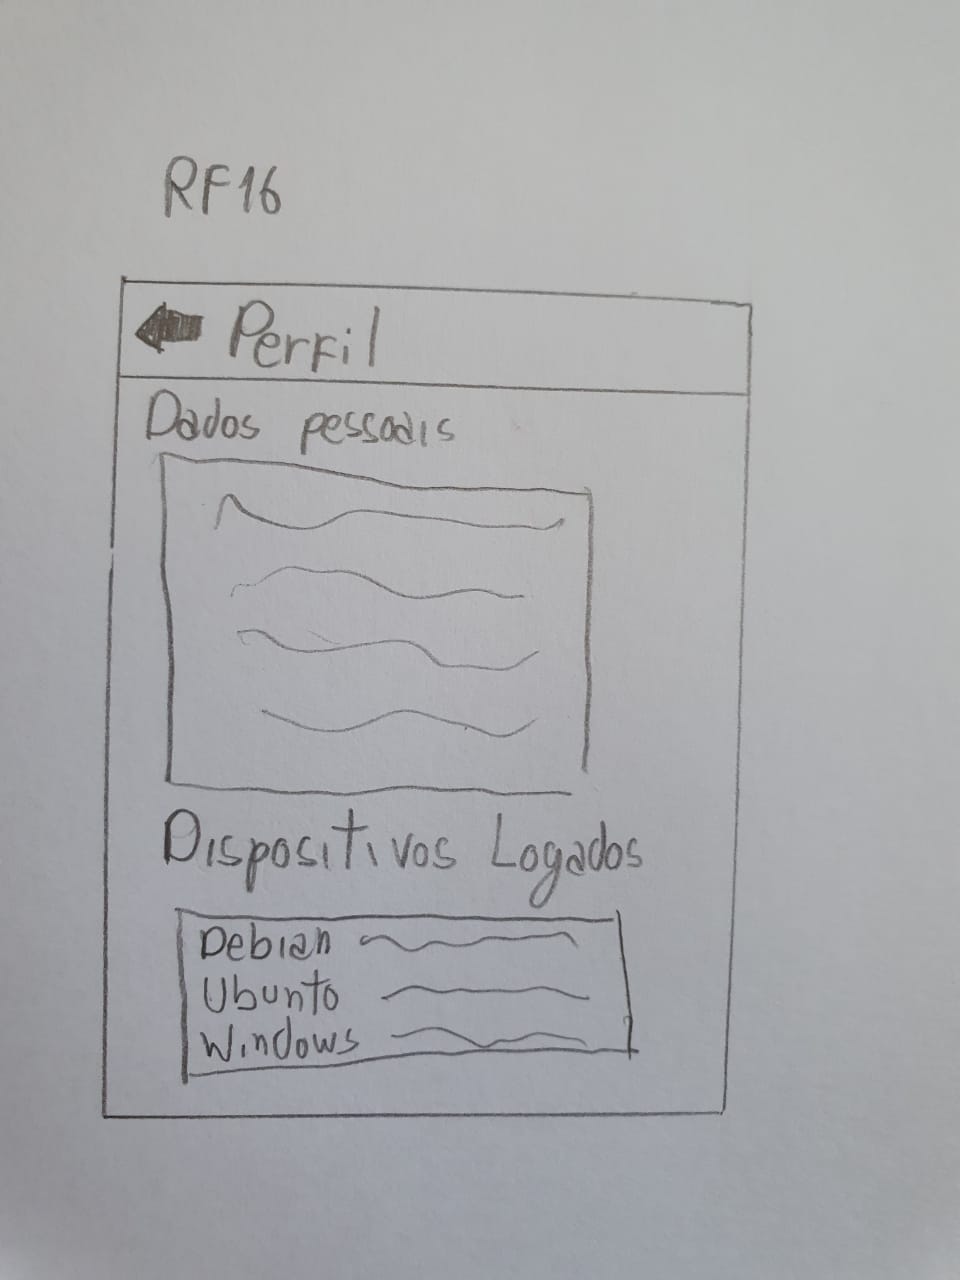 RF16
Perfil
Dados pessoais
Dispositivos Logados
Debian
Ubunto
Windows